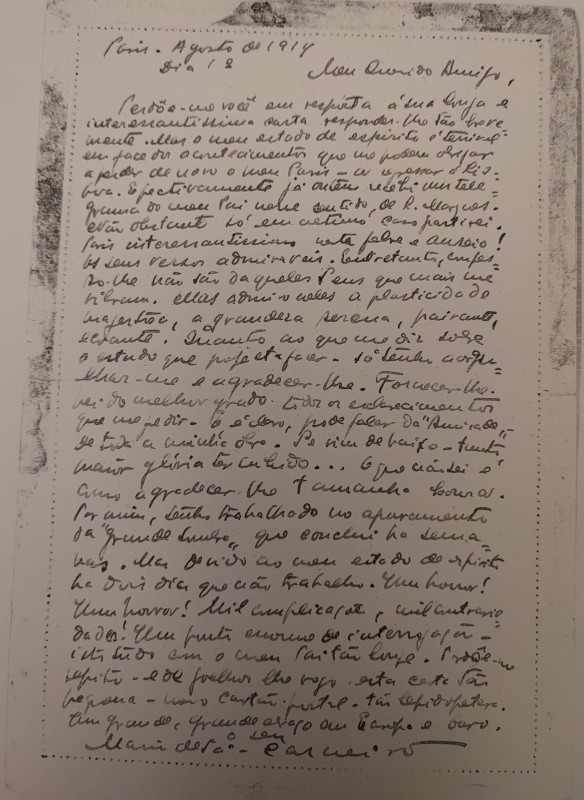 Paris - Agosto de 1914
Dia 12
Meu Querido Amigo,
Perdôe-me você em resposta á sua longa e
interessantissima carta responder-lhe tão breve
mente. Mas o meu estado de espirito é terrivel
em face dos acontecimentos que me podem obrigar
a perder de novo o meu Paris - a regressar a Lis-
boa. Efectivamente já ontem recebi um tele-
grama do meu Pai nesse sentido, de L. Marques.
Não obstante só em ultimo caso partirei.
Paris interessantissimo nesta febre e anseio!
Os seus versos admiraveis. Entretanto, confes-
so-lhe não são daqueles seus que mais me
vibram. Mas admiro neles a plasticidade
magestosa, a grandeza serena, pairante,
Quanto ao que me diz sobre
o estudo que projecta fazer - só tenho a orgu-
lhar-me e a agradecer-lhe. Fornecer-lhe-
ei do melhor grado todos os esclarecimentos
que me pedir. E é claro, pode falar da "Amizade",
de toda a minha obra. Se vim de baixo - tanto
maior glória ter subido... O que não sei é
como agradecer-lhe tamanha honra.
Por mim, tenho trabalhado no apuramento
da "Grande Sombra", que conclui ha sema-
nas. Mas devido ao meu estado de espirito
ha dois dias que não trabalho. Um horror!
Um horror! Mil complicações, mil contrarie-
dades! Um ponto enorme de interrogação -
isto tudo com o meu Pai tão longe. Perdôe-me
repito - e de joelhos lho rogo esta carta tão
pequena - novo cartão-postal - tão lepidoptera.
Um grande, grande abraço em Europa e ouro.
o seu
Mario de Sá-Carneiro